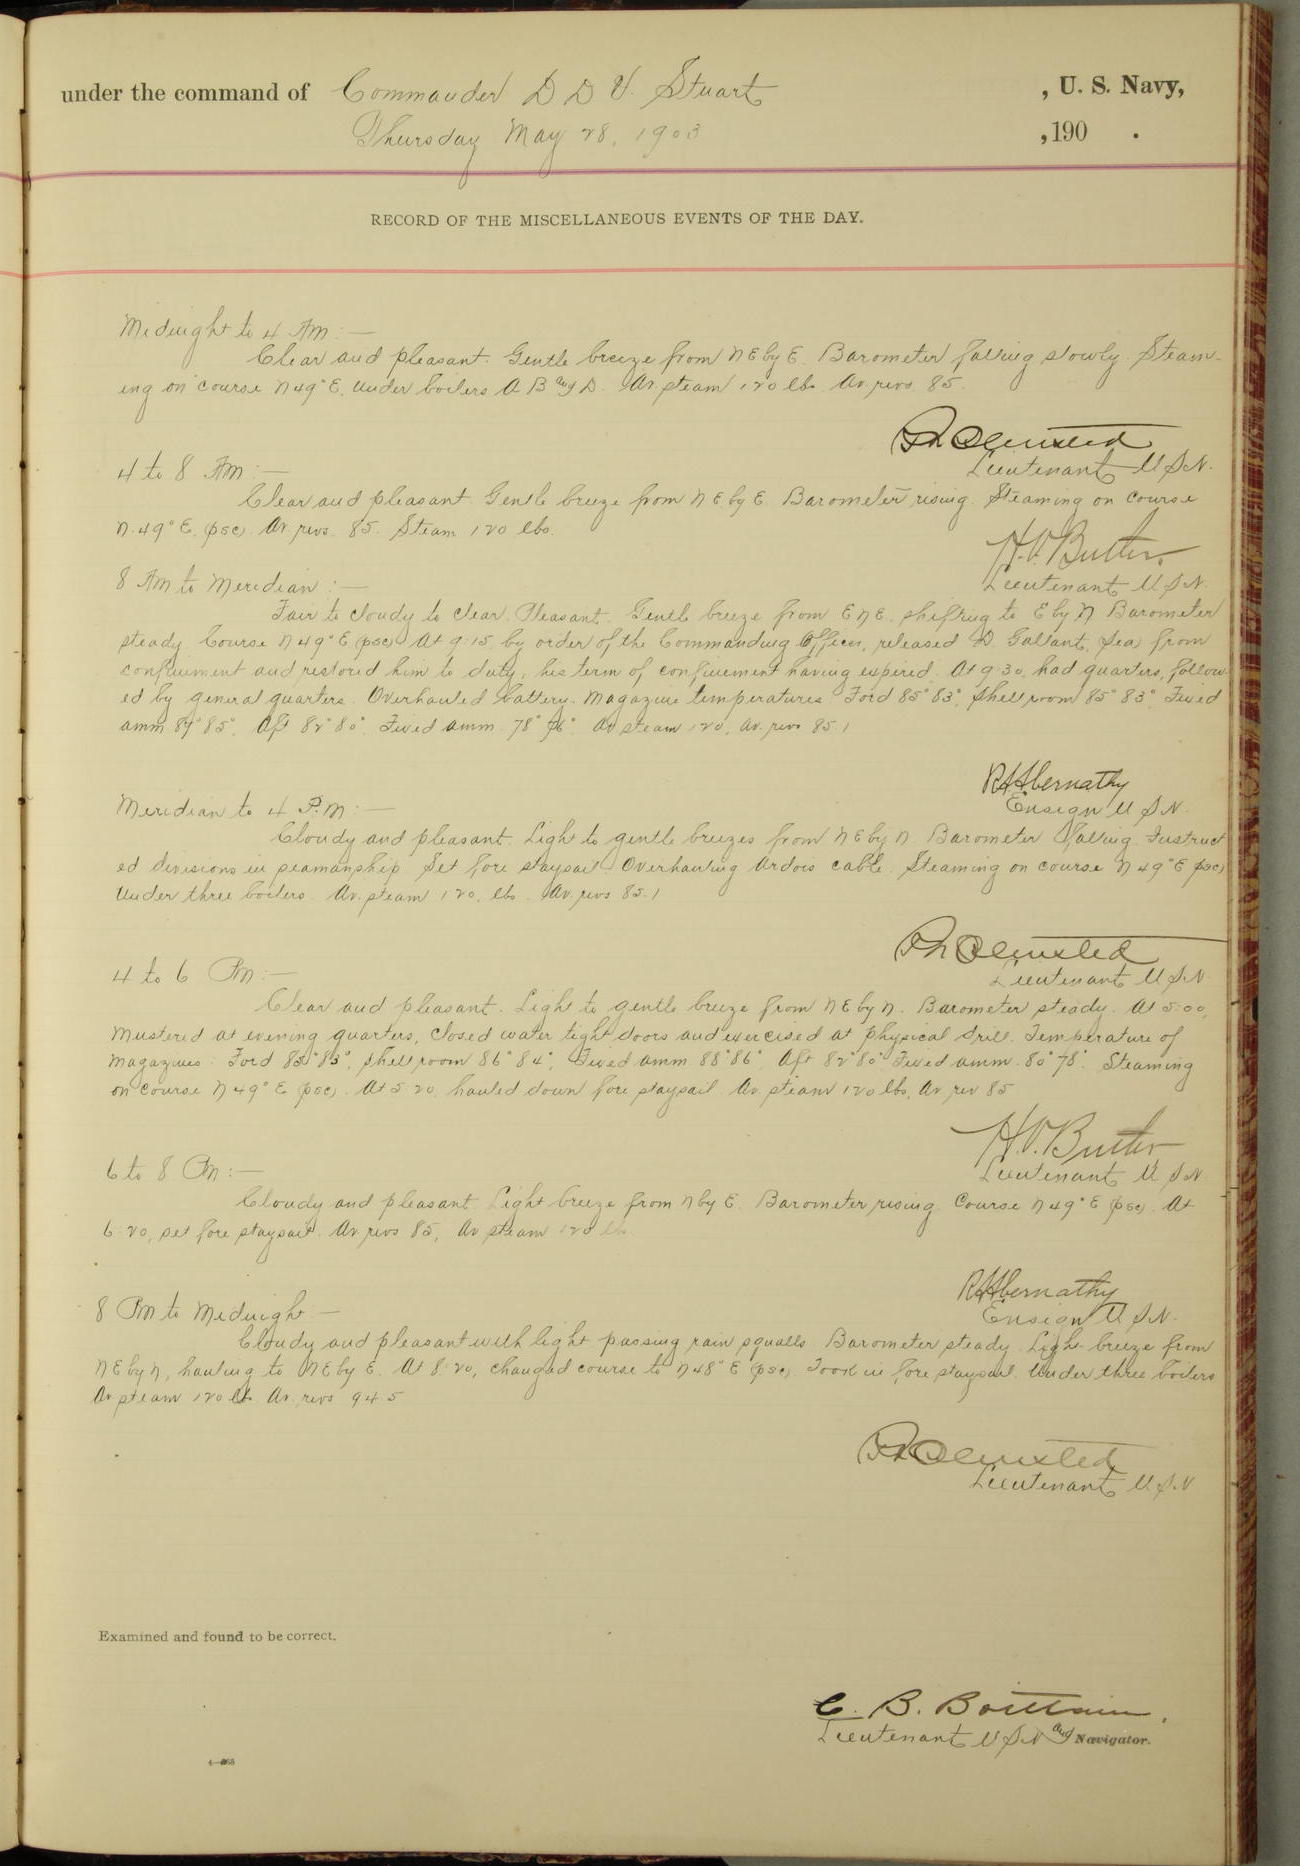 under the command of Commander D D V. Stuart , U. S. Navy,
Thursday May 28, 1903 , 190 .
RECORD OF THE MISCELLANEOUS EVENTS OF THE DAY.
Midnight to 4 AM:—
Clear and pleasant. Gentle breeze from NE by E. Barometer falling slowly. Steam-
ing on course N 49° E. under boilers A B and D. Av. steam 120 lbs. Av. revs. 85.
Olmsted
Lieutenant U.S.N.
4 to 8 AM:—
Clear and pleasant. Gentle breeze from NE by E. Barometer rising. Steaming on course
N. 49° E. (psc). Av. revs. 85. Steam 120 lbs.
H. V. Butler.
Lieutenant U.S.N.
8 AM to Meridian:—
Fair to cloudy to clear. Pleasant. Gentle breeze from ENE. shifting to E by N Barometer
steady. Course N 49° E (psc) At 9:15, by order of the Commanding Officer, released D. Gallant, (Sea) from
confinement and restored him to duty, his term of confinement having expired. At 9:30, had quarters, follow-
ed by general quarters. Overhauled battery. Magazine temperatures: Ford 85° 83°, Shell room 85° 83°, Fixed
amm 87° 85°, Aft 82° 80°. Fixed amm. 78° 76°. Av steam 120, Av. revs 85.1
R H Abernathy
Ensign U S N.
Meridian to 4 P.M:—
Cloudy and pleasant. Light to gentle breezes from NE by N. Barometer falling. Instruct
ed divisions in seamanship. Set fore staysail. Overhauling Ardois cable. Steaming on course N 49° E (psc)
Under three boilers. Av. steam 120, lbs. Av. revs 85.1
Olmsted
Lieutenant U S N
4 to 6 PM:—
Clear and pleasant. Light to gentle breeze from NE by N. Barometer steady. At 5:00,
Mustered at evening quarters, closed water tight doors and exercised at physical drill. Temperature of
magazines: Ford 85° 83°, shell room 86° 84°, Fixed amm 88° 86°, Aft 82° 80° Fixed amm. 80° 78°. Steaming
on course N 49° E (psc). At 5:20, hauled down fore staysail. Av. steam 120 lbs, Av rev 85
H. V. Butler
Lieutenant U S N
6 to 8 PM:—
Cloudy and pleasant. Light breeze from N by E. Barometer rising. Course N 49° E (psc). At
6:20, set fore staysail. Av. revs 85, Av steam 120 lbs
R H Abernathy
Ensign U S N.
8 PM to Midnight—
Cloudy and pleasant with light passing rain squalls. Barometer steady. Light breeze from
NE by N, hauling to NE by E. At 8:20, changed course to N 48° E (psc). Took in fore staysail. Under three boilers
Av steam 120 lbs. Av. revs 94.5
Olmsted
Lieutenant U.S.N
Examined and found to be correct.
C. B. Brittain,
Lieutenant U S N and Navigator.